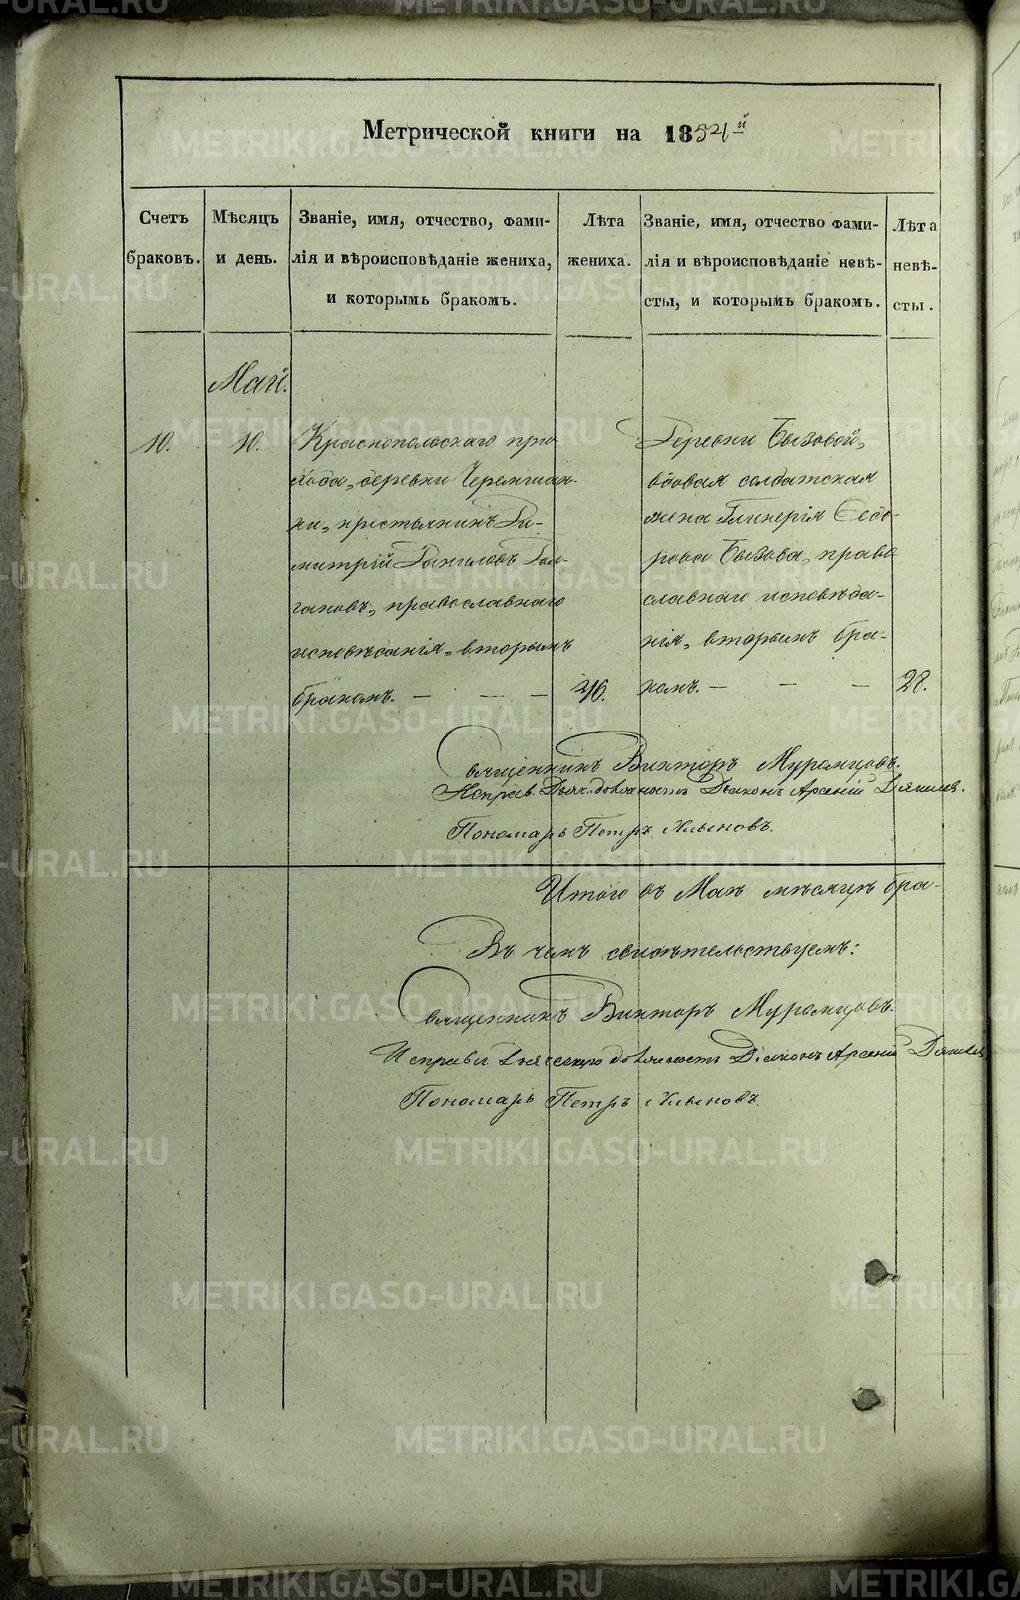 Метрической книги на 1854й
Счетъ браковъ.
Мѣсяцъ и день.
Званіе, имя, отчество, фами-
лія и вѣроисповѣданіе жениха,
и которымъ бракомъ.
Лѣта жениха.
Званіе, имя, отчество фами-
лія и вѣроисповѣданіе невѣ-
сты, и которымъ бракомъ.
Лѣта невѣ-
сты.
Май.
10.
10.
Краснопольскаго при
хода, деревни Черемшан-
ки, крестьянинъ Ди-
митрій Даниловъ Дол-
гановъ, православнаго
исповѣданія, вторымъ
бракомъ. — — —
46.
Деревни Бызовой,
вдовая солдатская
жена Гликерія Ѳедо-
рова Бызова, право
славнаго исповѣда-
нія, вторымъ бра-
комъ. — — —
28.
Священникъ Викторъ Муромцовъ.
Исправ. Дьяч. должность Діаконъ Арсеній
Пономарь Петръ Хлыновъ.
Итого въ Маѣ мѣсяцѣ бра-
Въ чемъ свидѣтельствуемъ:
Священникъ Викторъ Муромцовъ.
Исправл. Дьяческую должность Діаконъ Арсеній
Пономарь Петръ Хлыновъ.
METRIKI.GASO-URAL.RU